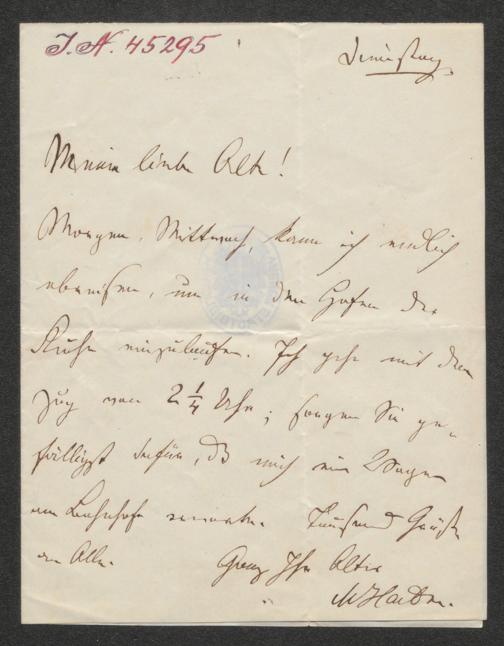 I. N. 45295
Dienstag.
Meine liebe Alte!
Morgen, Mittwoch, kann ich endlich
abreisen, um in den Hafen der
Ruhe einzulaufen. Ich gehe mit dem
Zug von 2 1/4 Uhr; sorgen Sie ge-
fälligst dafür, daß mich ein Wagen
am Bahnhofe erwarte. Tausend Grüße
an Alle. Ganz Ihr Alter